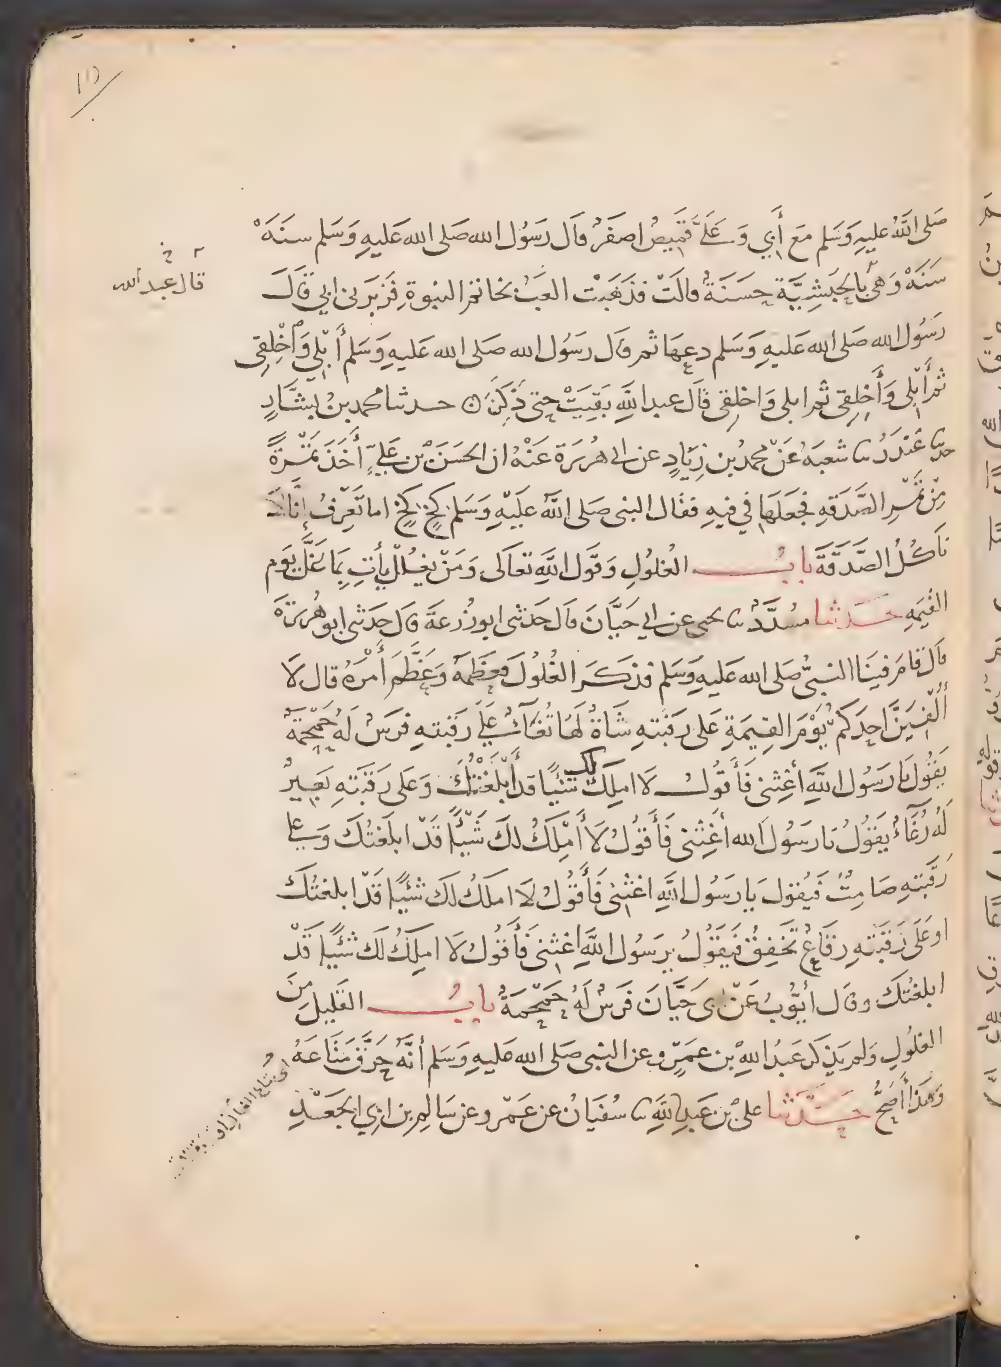 صَلى اللَّهُ عليهِ وَسَلم مَع أَبي وَعَلَىَّ قَمِيصٌ اصفَرُ قَالَ رَسُول الله صَلى الله عَليهِ وَسَلم سَنَهْ
سَنَهْ وَهىَ بِالحَبَشِيَّة حَسَنَةٌ قالَتْ فذَهَبْت العَبُ بخاتم النبوة فزَبَرنى ابي قَالَ
رَسُول الله صَلى الله عَليهِ وَسَلم دعهَا ثم قال رَسُول الله صَلى الله عَليهِ وَسَلم أَبْلِي وَاخْلِقِى
ثم أَبْلِى وَأَخْلِقِى ثم ابلى وَاخلِقِى قَالَ عبد اللَّهِ بَقِيَتْ حتى ذَكِنَ ۞ حدثنا محمد بنُ بَشَّارٍ
حدثنا غُنْدَرٌ نا شعبَهُ عَنْ محمد بْن زِيَادٍ عن ابي هُرَيرَة عَنْهُ ان الحَسَنَ بْن عَليٍّ أَخَذَ تَمْرَةً
مِنْ تَمْرِ الصَّدَقهِ فجعَلهَا في فيهِ فقال النبى صَلى اللَّهُ عَلَيْهِ وَسَلم كَخٍ كَخٍ اما تَعْرِفُ إِنَّا لَا
نَاكُلُ الصَّدَقَةَ بابُ الغُلولِ وَقَول اللَّهِ تعَالَى وَمَنْ يَغْلُلْ يأتِ بِمَا غَلَّ يَوم
القيمهِ حَدثنا مسُدَّدٌ نا يحيى عن ابي حَيَّانَ قال حَدثنى ابو زُرعَةَ قال حَدثنى ابو هُرَيْرَةَ
قال قامَ فينَا النبىُّ صَلى الله عَليهِ وَسَلم فذكَرَ الغُلولَ فعظّمَهُ وَعَظَّمَ أَمْرَهُ قال لَا
أُلْفِيَنَّ احَدَكم يَوْمَ القِيمَةِ عَلى رَقبَتهِ شَاةٌ لهَا ثُغَآءٌ عَلَى رَقبَتهِ فَرَسٌ لَهُ حَمْحَمَةٌ
يَقُولُ يَا رَسُول اللَّهِ أَغِثْنى فَأَقولُ لَا املِكُ لك شَيْئًا قد أَبْلَغْتُكَ وَعَلى رَقَبَتهِ بَعِيرٌ
لَهُ رُغَاءٌ يَقُولُ يا رَسُولَ الله أَغِثْنى فَأَقولُ لَا أَمْلِكُ لكَ شَيْئًا قَدْ ابلَغتُكَ وَعلى
رَقَبَتهِ صَامِتٌ فَيَقول يَا رَسُول اللَّهِ اغثنى فَأَقُولُ لَا املكُ لَك شَيْئًا قَدْ ابلغتُكَ
او عَلَى رَقبَتهِ رِقَاعٌ تَخفِقُ فيَقُولُ يرسُول اللَّهِ اغثنى فَأَقُولُ لَا املِكُ لَك شَيْئًا قَدْ
ابلغتُكَ وقال أيّوبُ عَنْ ابى حَيَّانَ فَرَسٌ لَهُ حَمْحَمَةٌ بابُ القليلِ مِنَ
الغلُولِ وَلم يَذكر عَبدُ اللَّهِ بن عَمْرٍو عن النبى صَلى الله عَليهِ وَسَلم أَنَّهُ حَرَّقَ مَتَاعَهُ
وَهَذَا أَصَحُّ حَدَّثَنا علىُّ بْن عَبد اللَّهِ نا سُفيَانُ عن عَمْرو عن سَالم بن ابي الجَعْدِ
قال عبد الله
اى متاع الغال